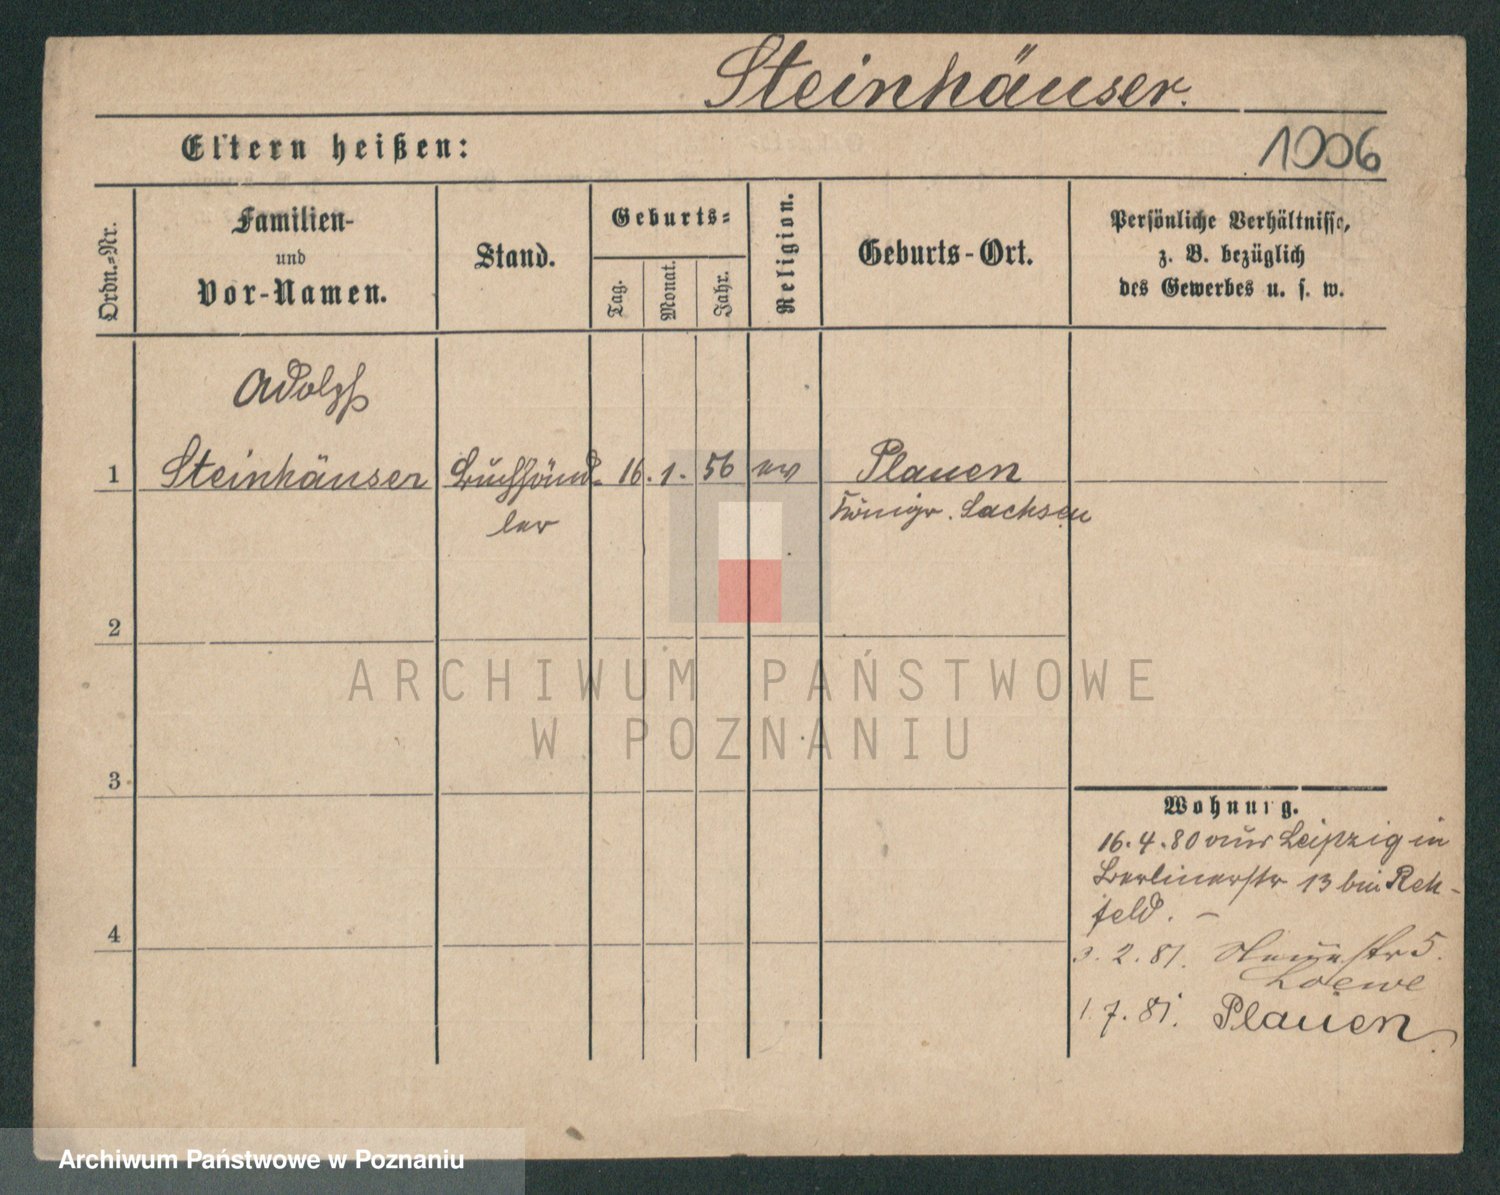 Steinhäuser.
Eltern heißen:
1006
Ordn.-Nr.
Familien-
und
Vor-Namen.
Stand.
Geburts-
Tag.
Monat.
Jahr.
Religion.
Geburts-Ort.
Persönliche Verhältnisse,
z. B. bezüglich
des Gewerbes u. s. w.
Adolph
1 Steinhäuser Buchhänd- 16. 1. 56 ev Plauen
ler Königr. Sachsen
2
3
4
Wohnung.
16.4.80 aus Leipzig in
Berlinerstr 13 bei Reh-
feld. –
3.2.81. Neuestr 5.
Loewe
1.7.81. Plauen
ARCHIWUM PAŃSTWOWE
W POZNANIU
Archiwum Państwowe w Poznaniu